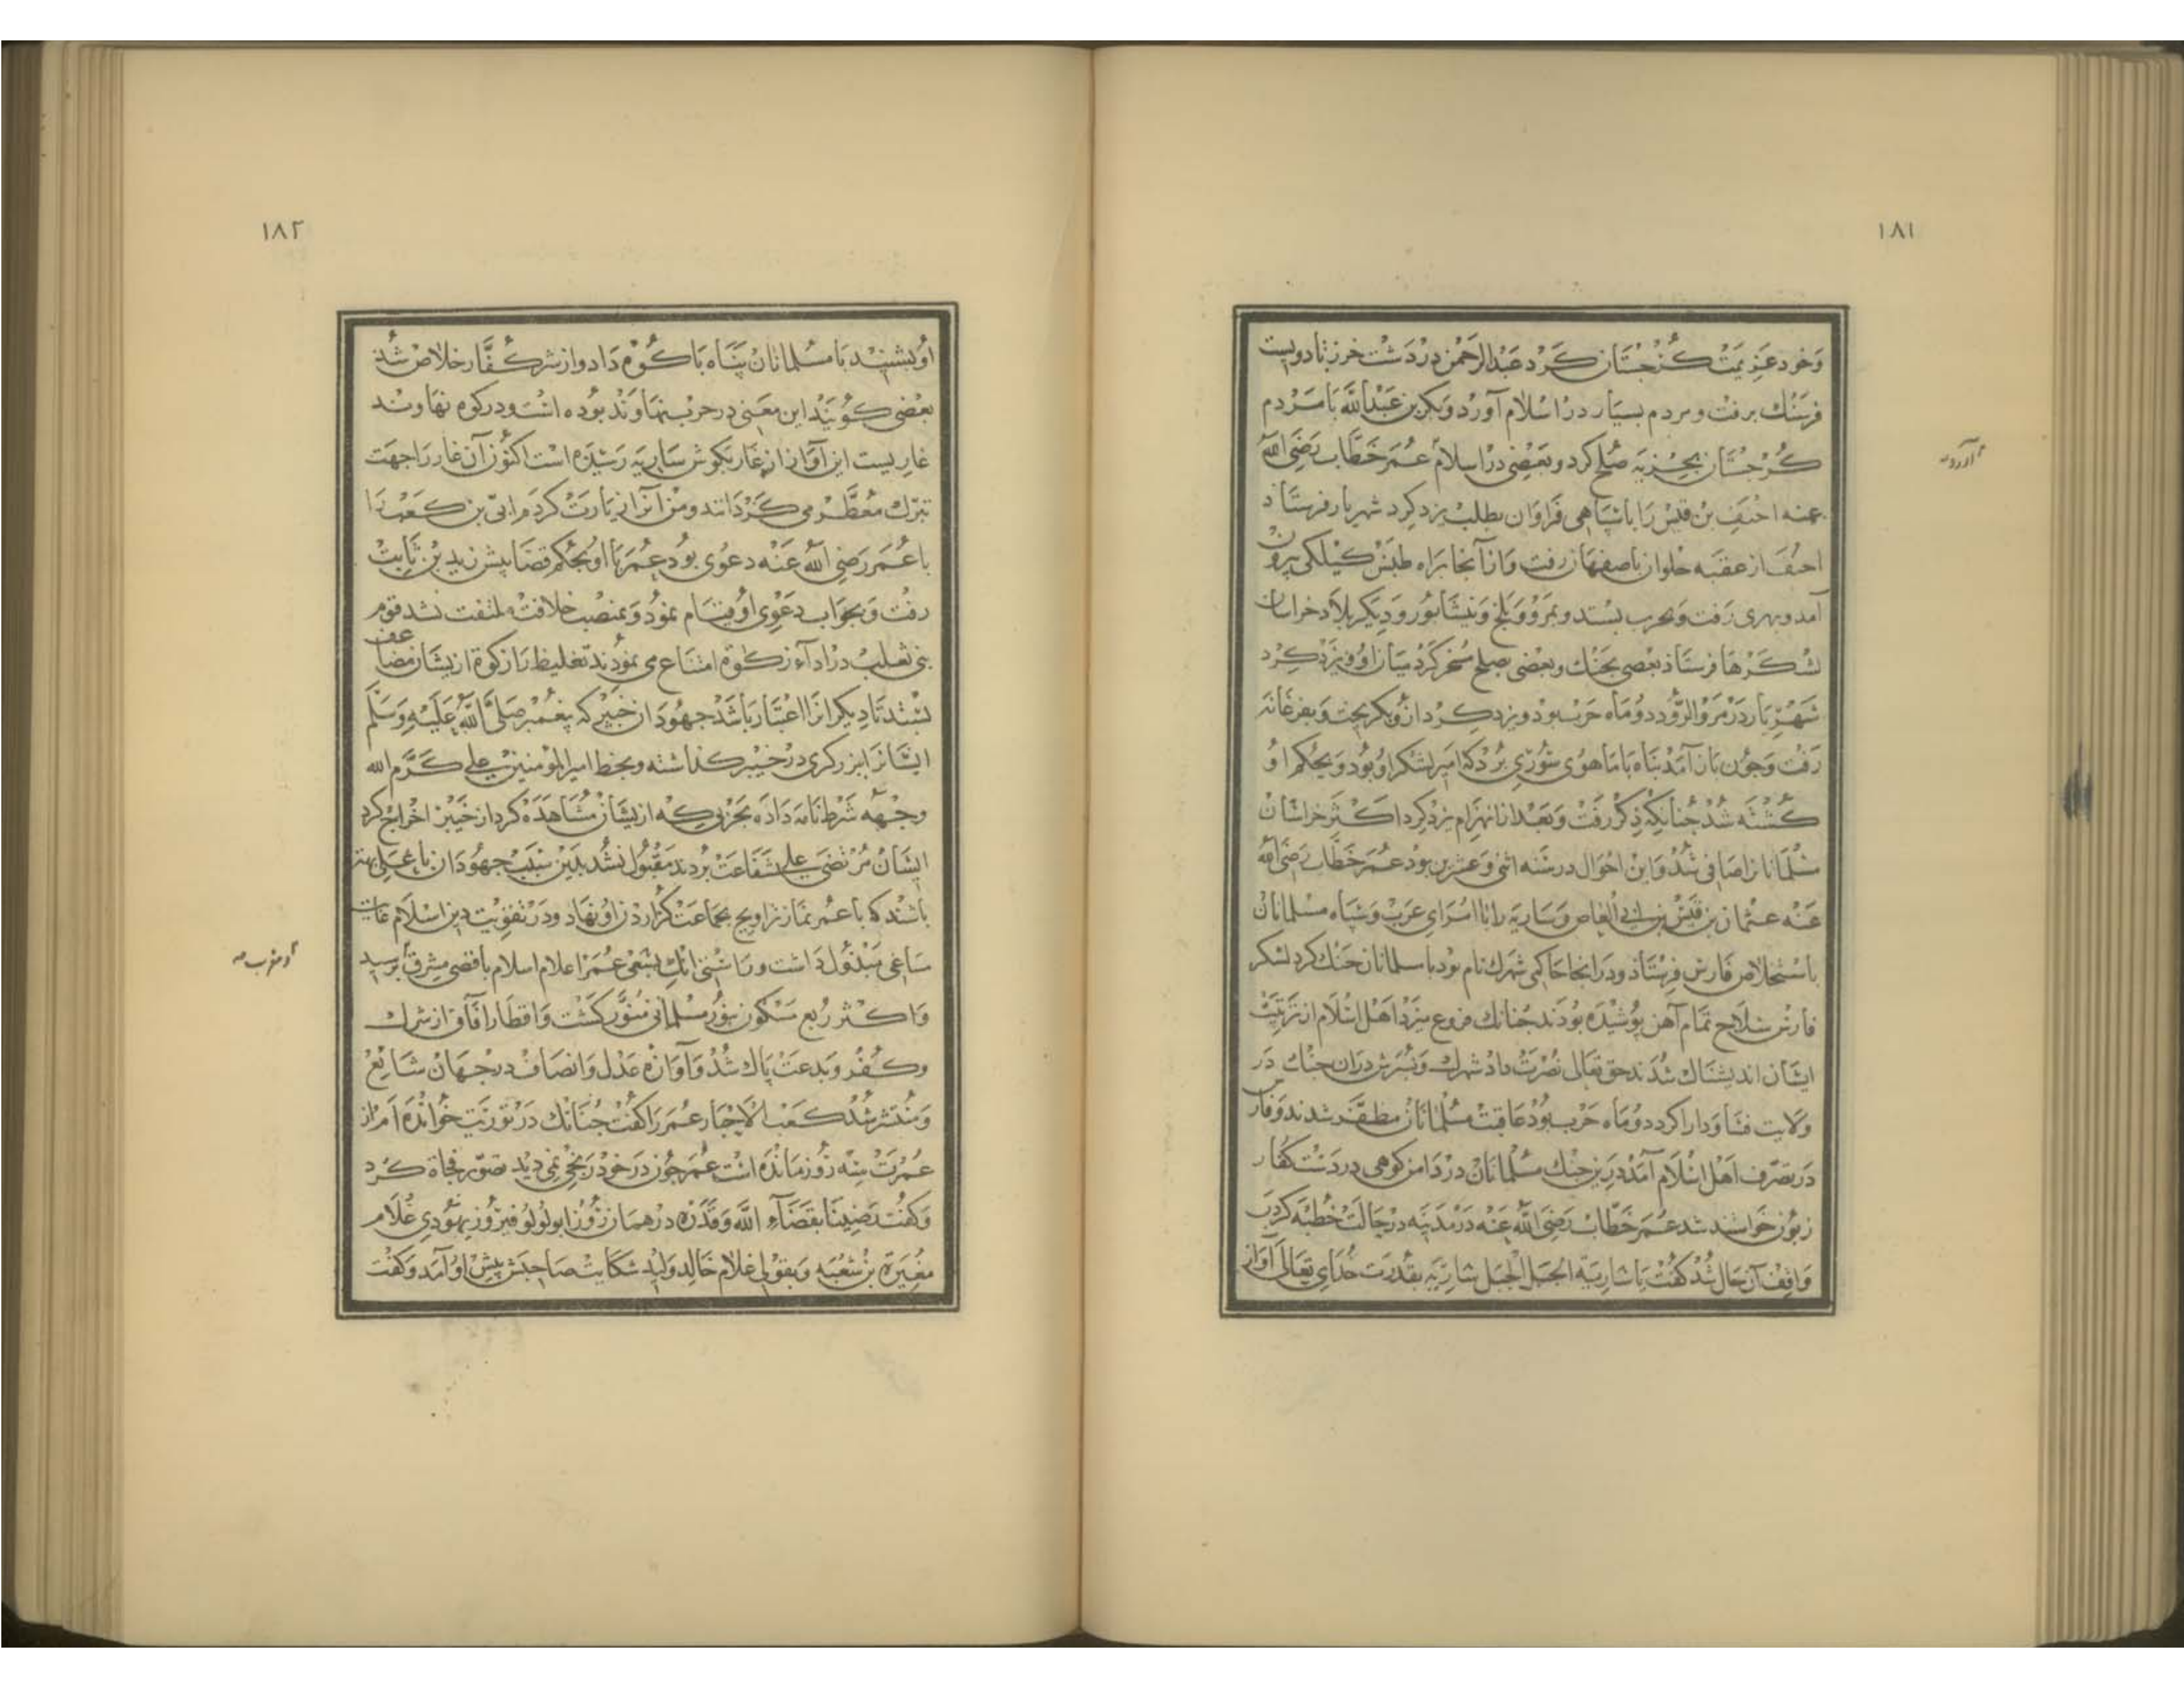 ١٨١
وخود عزیمت کرجستان کرد عبدالرحمن در دشت خرز تا دویست
فرسنك برفت و مردم بسیار در اسلام آورد و بکر بن عبدالله با مردم
کرجستان بجزیه صلح کرد و بعضی در اسلام عمر خطاب رضی الله
عنه احنف بن قیس را با سپاهی فراوان بطلب یزدکرد شهریار فرستاد
احنف از عقبه حلوان باصفهان رفت و از آنجا براه طبس کیلکی بیرون
آمد و بهری رفت و بحرب بستد و بمرو و بلخ و نیشابور و دیکر بلاد خراسان
لشکرها فرستاذ بعضی بجنك و بعضی بصلح مسخر کرد میان او و یزدکرد
شهریار در مرو الرود دو ماه حرب بود و یزدکرد ازو بکریخت و بفرغانه
رفت و چون باز آمد پناه با ماهوی سوری برد که امیر لشکر او بود و بحکم او
کشته شد چنانکه ذکر رفت و بعد از انهزام یزدکرد اکثر خراسان
مسلمانانرا صافی شد و این احوال در سنه اثنی و عشرین بود عمر خطاب رضی الله
عنه عثمان بن قیس بن ابی العاص و ساریه را با امرای عرب و سپاه مسلمانان
باستخلاص فارس فرستاذ و در انجا حاکمی شهرك نام بود با مسلمانان جنك کرد لشکر
فارس سلاح تمام آهن پوشیده بودند چنانك فروع میزد اهل اسلام از ترتیب
ایشان اندیشناك شدند حق تعالی نصرت داد شهرك و پسرش دران جنك در
ولایت فسا و داراکرد دو ماه حرب بود عاقبت مسلمانان مظفر شدند و فارس
در تصرف اهل اسلام آمد درین جنك مسلمانان در دامن کوهی در دست کفار
زبون خواستند شد عمر خطاب رضی الله عنه در مدینه در حالت خطبه کردن
واقف آن حال شد کفت یا ساریة الجبل الجبل ساریه بقدرت خدای تعالی آواز
١٨٢
او بشنید با مسلمانان پناه با کوه داد و از شر کفار خلاص شد
بعضی کویند این معنی در حرب نهاوند بوده است و در کوه نهاوند
غاریست این آواز از غار بکوش ساریه رسیده است اکنون آن غار را جهت
تبرك معظم می کردانند و من انرا زیارت کردم ابی بن کعب را
با عمر رضی الله عنه دعوی بود عمر با او بحکم قضا پیش زید بن ثابت
رفت و بجواب دعوی او قیام نمود و بمنصب خلافت ملتفت نشد قوم
بنی تغلب در اداء زکوة امتناع می نمودند تغلیظ را زکوة از یشان مضاعف
بستد تا دیکرانرا اعتبار باشد جهودان خیبر که پیغمبر صلی الله علیه وسلم
ایشانرا ببرزکری در خیبر کذاشته و بخط امیر المؤمنین علی کرم الله
وجهه شرط نامه داده بجرمی که از یشان مشاهده کرد از خیبر اخراج کرد
ایشان مرتضی علی شفاعت بردند مقبول نشد بدین سبب جهودان با علی بد
باشند که با عمر نماز تراویح بجماعت کزاردن او نهاد و در تقویت دین اسلام غایت
ساعی مبذول داشت و تا شش انك بسعی عمر اعلام اسلام باقصی مشرق برسید
و اکثر ربع مسکون بنور مسلمانی منور کشت و اقطار آفاق از شرك
و کفر و بدعت پاك شد و آوازه عدل و انصاف در جهان شایع
و منتشر شد کعب الاحبار عمر را کفت چنانك در توریت خوانده ام از
عمرت سه روز مانده است عمر چون در خود رنجی نمی دید تصور فجاة کرد
و کفت رضینا بقضاء الله و قدره در همان روز ابولولو فیروز یهودی غلام
مغیرة بن شعبه و بقولی غلام خالد ولید شکایت صاحبش پیش او آمد و کفت
و مغرب